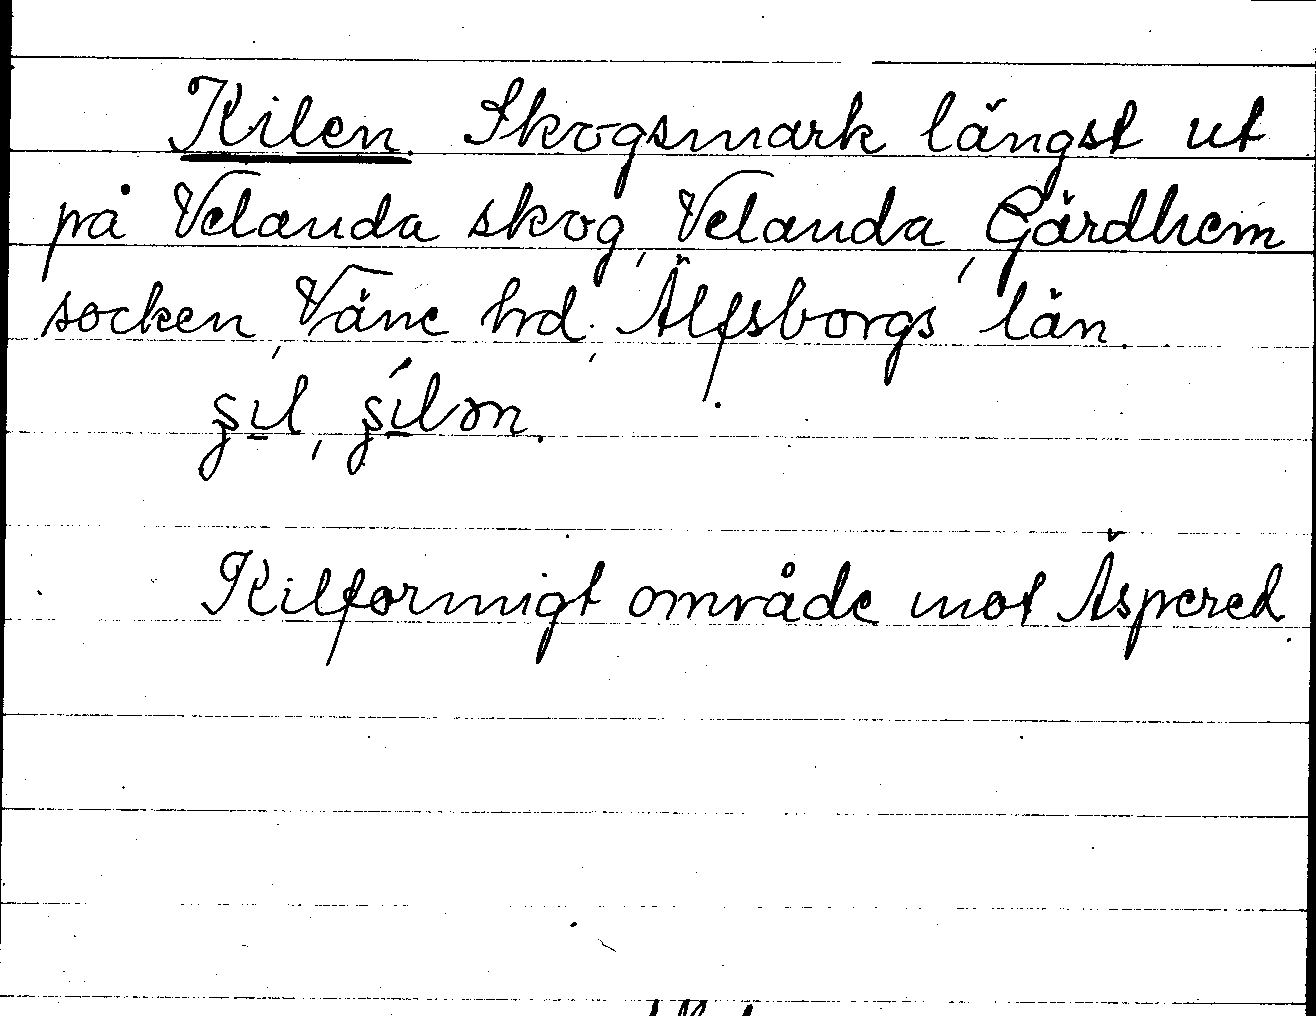 Kilen. Skogsmark längst ut
på Velanda skog, Velanda, Gärdhem
socken, Väne hd, Älfsborgs län.
Kilformigt område mot Äspered.